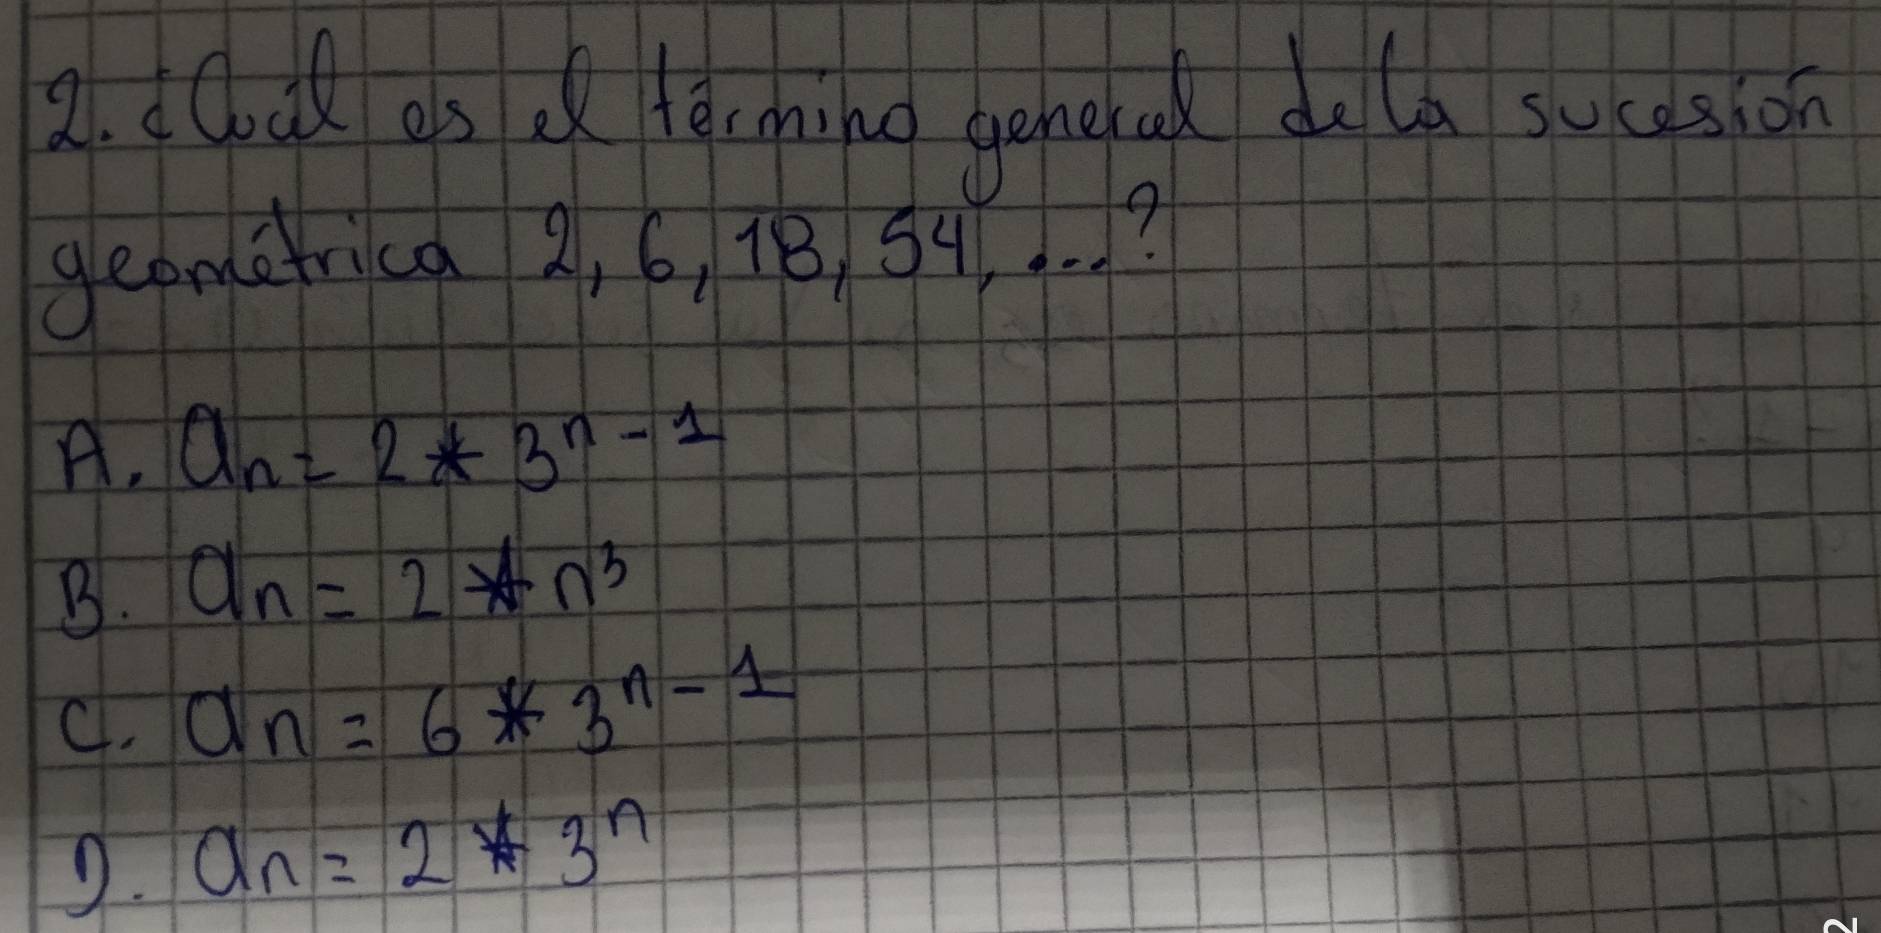 2. ¿Cuál es el término general de la sucesión
geométrica 2, 6, 18, 54, ...?
A. an = 2 * 3^n - 1
B. an = 2 * n^3
C. an = 6 * 3^n - 1
D. an = 2 * 3^n
2